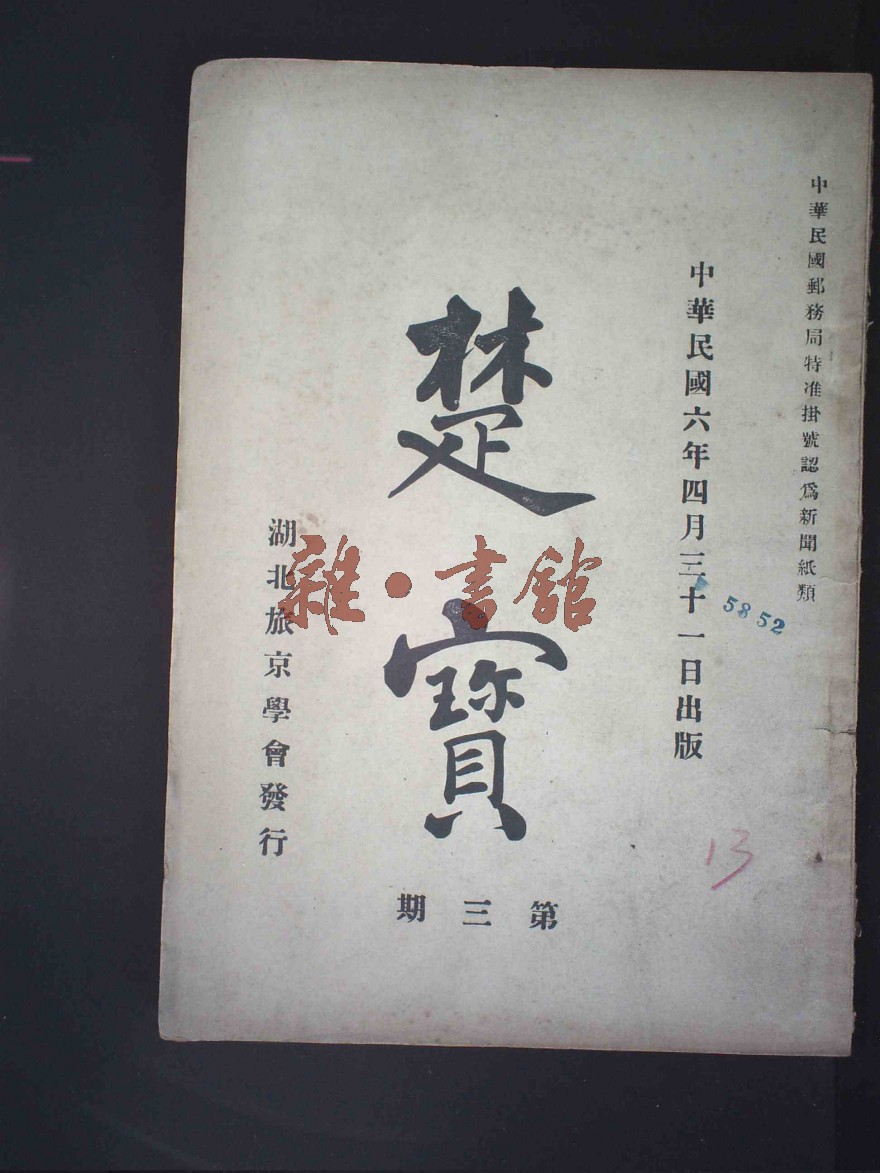 中華民國郵務局特准掛號認爲新聞紙類
中華民國六年四月三十一日出版
5852
楚寶
第三期
湖北旅京學會發行
雜·書館
13